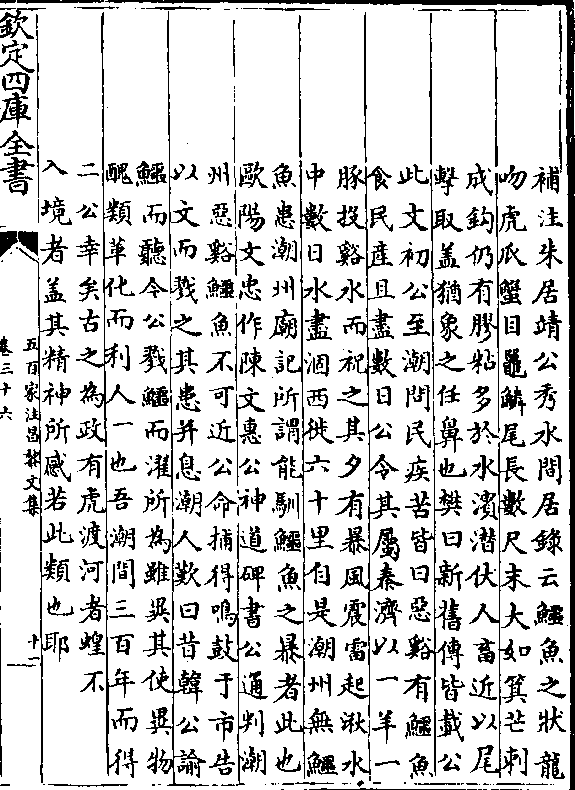 補注朱居靖公秀水閒居錄云鱷魚之狀龍
吻虎爪蟹目鼉鱗尾長數尺末大如箕芒刺
成鈎仍有膠粘多於水濱潛伏人畜近以尾
擊取葢猶象之任鼻也樊曰新舊傳皆載公
此文初公至潮問民疾苦皆曰惡谿有鱷魚
食民產且盡數日公令其屬秦濟以一羊一
豚投谿水而祝之其夕有暴風震雷起湫水
中數日水盡涸西徙六十里自是潮州無鱷
魚患潮州廟記所謂能馴鱷魚之暴者此也
歐陽文忠作陳文惠公神道碑書公通判潮
州惡谿鱷魚不可近公命捕得鳴鼓于市告
以文而戮之其患并息潮人歎曰昔韓公諭
鱷而聽令公戮鱷而濯所為雖異其使異物
醜類革化而利人一也吾潮間三百年而得
二公幸矣古之為政有虎渡河者蝗不
入境者葢其精神所感若此類也耶
欽定四庫全書
五百家注昌黎文集
卷三十六
十二